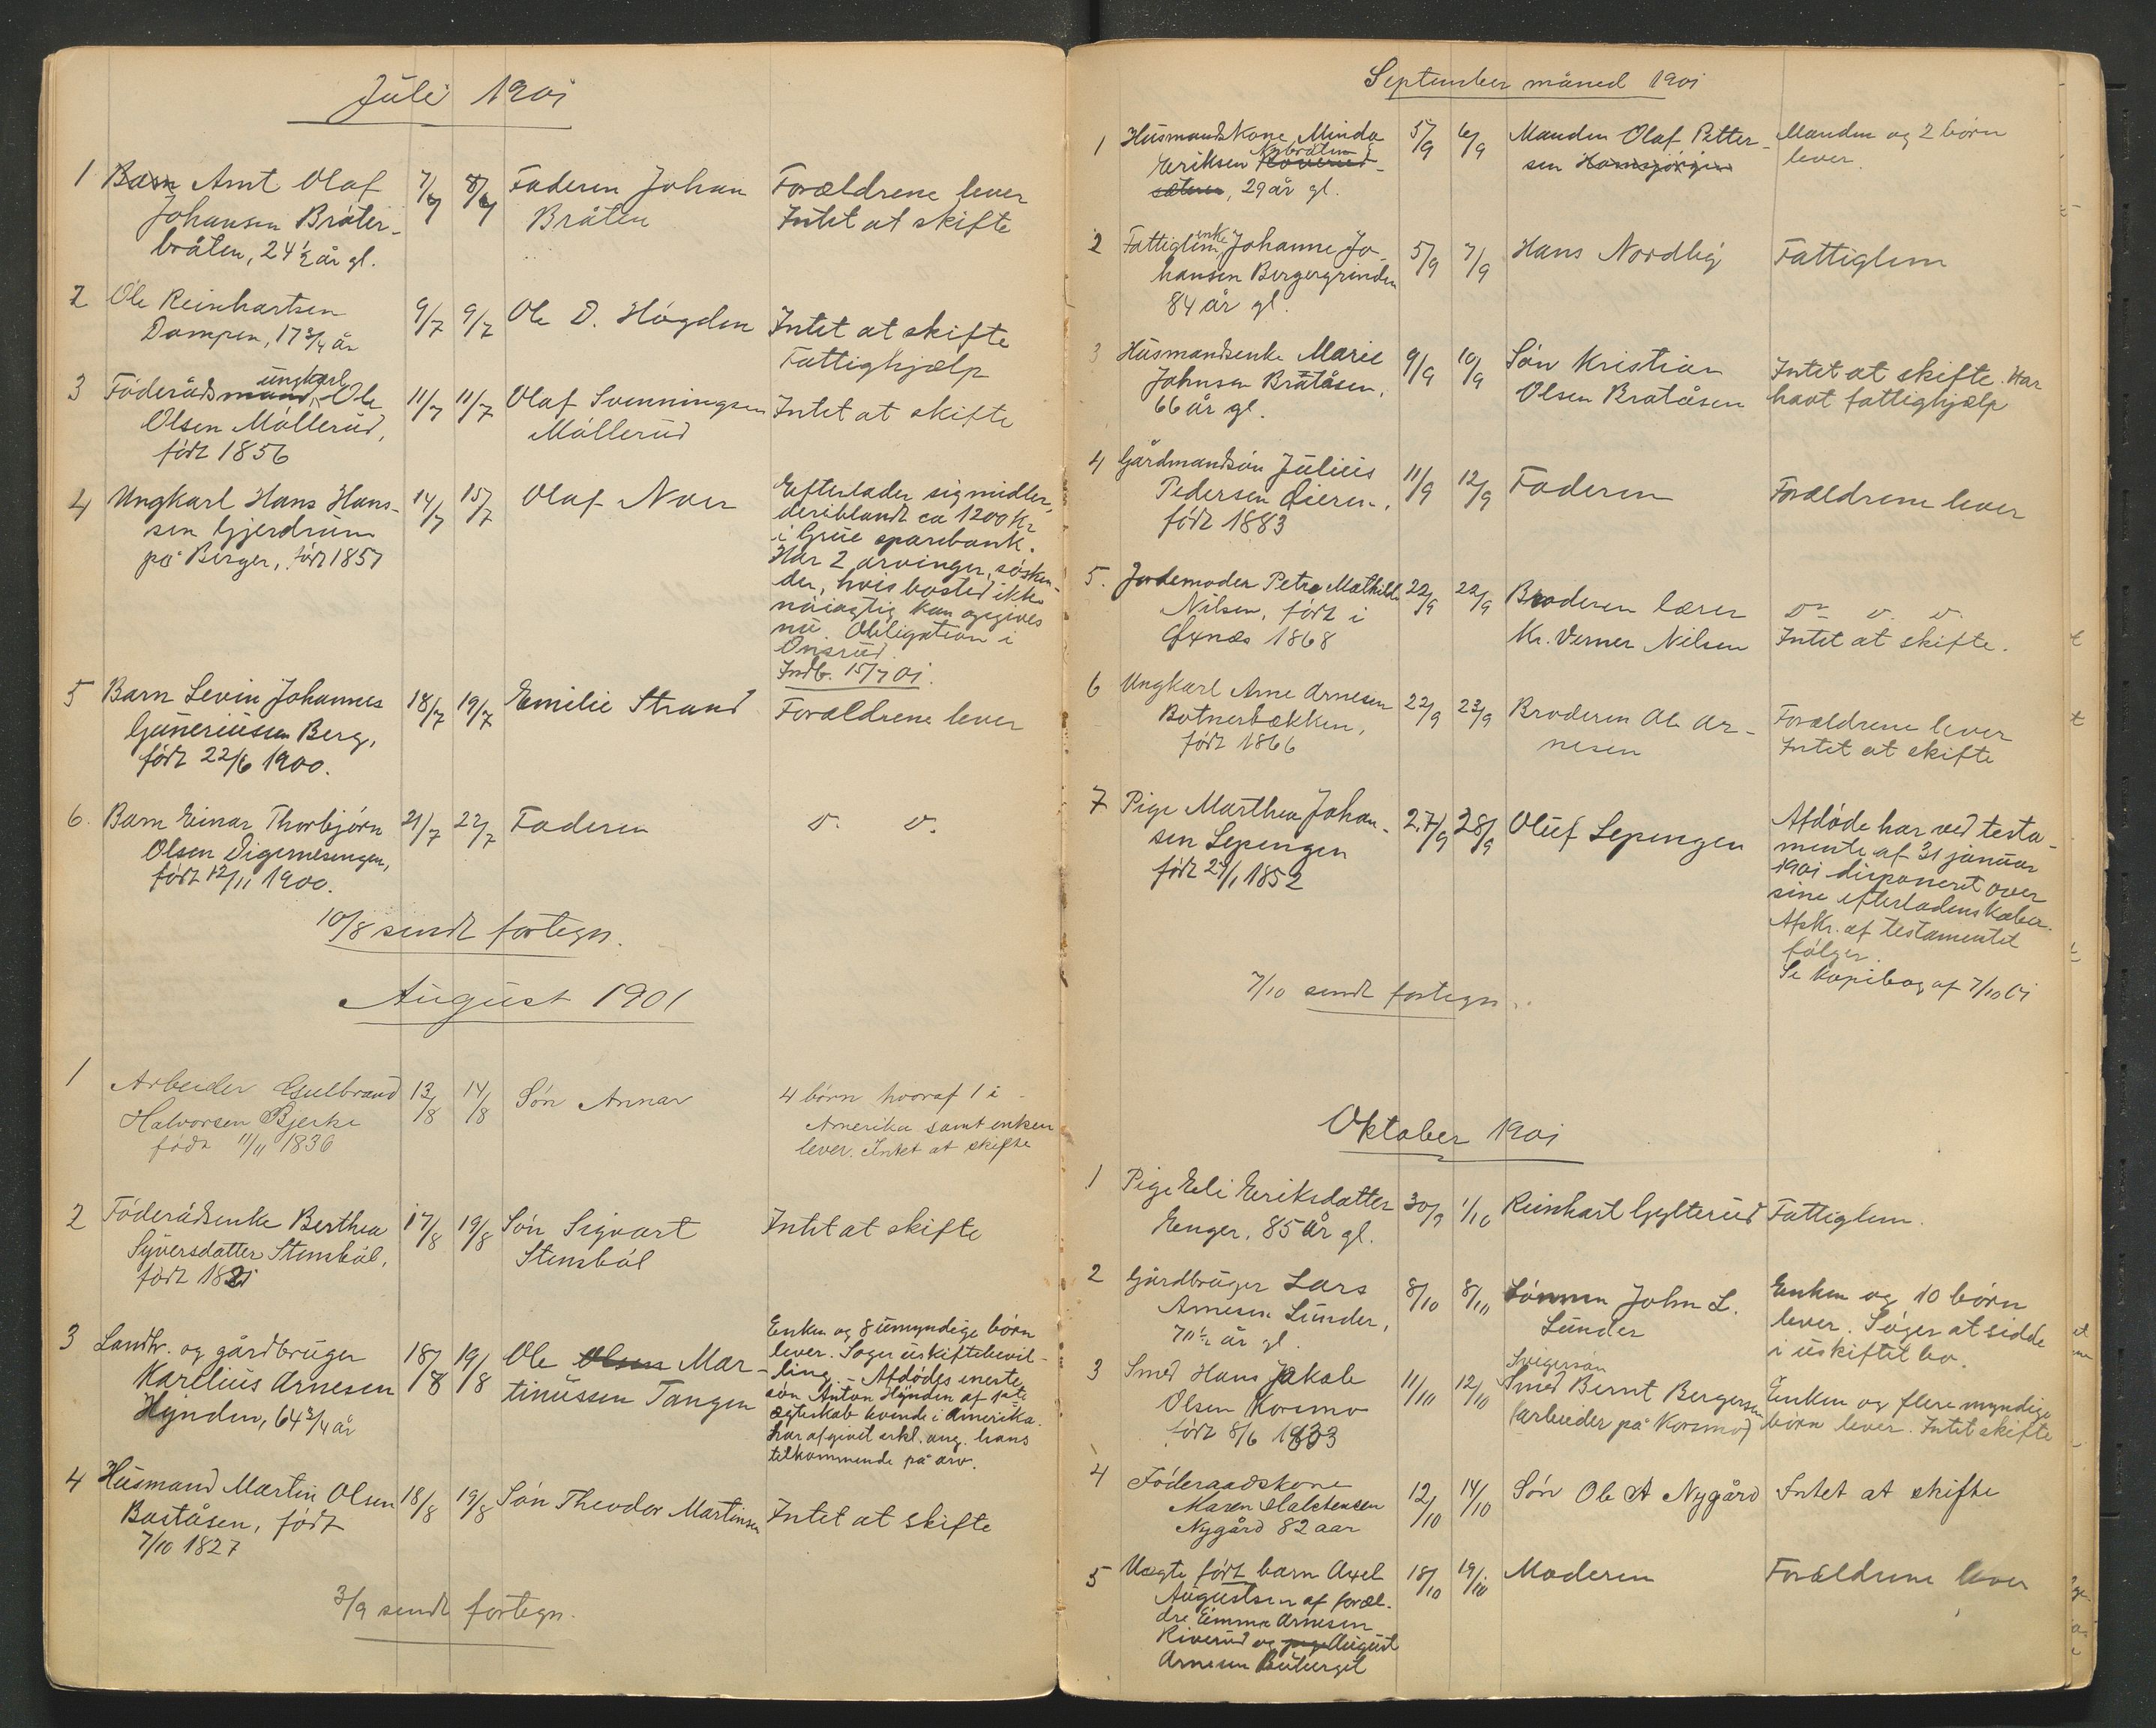 Juli 1901
1 Barn Arnt Olaf 7/7 8/7 Faderen Johan Forældrene lever
Johansen Bråter- Bråten Intet at skifte
bråten, 24 1/2 år gl.
2 Ole Reinhartsen 9/7 9/7 Ole D. Högden Intet at skifte
Dampen, 17 3/4 år Fattighjælp
ungkarl
3 Föderådsmand, Ole 11/7 11/7 Olaf Svenningsen Intet at skifte
Olsen Möllerud, Möllerud
födt 1856
4 Ungkarl Hans Hans- 14/7 15/7 Olaf Noer Efterlader sig midler,
sen Gjerdrum deriblandt ca 1200 Kr
på Berger, födt 1857 i Grue sparebank.
Har 2 arvinger, søsken-
der, hvis bosted ikke
nöiagtig kan opgives
nu. Obligation i
Onsrud.
Indb. 15/7 01.
5 Barn Levin Johannes 18/7 19/7 Emilie Strand Forældrene lever
Guneriusen Berg,
födt 22/6 1900.
6. Barn Einar Thorbjörn 21/7 22/7 Faderen D. D.
Olsen Digernesengen,
födt 12/11 1900.
10/8 sendt fortegn.
August 1901
1 Arbeider Gulbrand 13/8 14/8 Sön Annar 4 börn hvoraf 1 i
Halvorsen Bjerke Amerika samt enken
født 11/11 1836 lever. Intet at skifte
2 Föderådsenke Berthea 17/8 19/8 Sön Sigvart Intet at skifte
Syversdatter Stensböl, Stensböl
födt 1821
3 Landh. og gårdbruger 18/8 19/8 Ole Olsen Mar- Enken og 8 umyndige börn
Karelius Arnesen tinussen Tangen lever. Søger uskiftebevil-
Hynden, 64 3/4 år ling. - Afdödes eneste
sön Anton Hynden af 1ste
ægteskab boende i Amerika.
har afgivet erkl. ang. hans
tilkommende på arv.
4 Husmand Martin Olsen 18/8 19/8 Sön Theodor Martinsen Intet at skifte
Baståsen, födt
7/10 1827
3/9 sendt fortegn.
September måned 1901
1 Husmandskone Minda 5/9 6/9 Manden Olaf Petter- Manden og 2 børn
Nybråten
Eriksen sen lever.
, 29 år gl.
enke
2 Fattiglem, Johanne Jo- 5/9 7/9 Hans Nordby Fattiglem
hansen Bergergrinden
84 år gl.
3 Husmandsenke Marie 9/9 10/9 Sön Kristian Intet at skifte. Har
Johnsen Bratåsen, Olsen Bratåsen havt fattighjælp
66 år gl.
4 Gårdmandsön Julius 11/9 12/9 Faderen Forældrene lever
Pedersen Öieren,
födt 1883
5. Jordemoder Petra Mathilde 22/9 22/9 Broderen lærer D. D. D.
Nilsen, født i Kr. Verner Nilsen Intet at skifte.
Öxnæs 1868
6 Ungkarl Arne Arnesen 22/9 23/9 Broderen Ole Ar- Forældrene lever
Botnerbækken, nesen Intet at skifte
født 1866
7 Pige Marthea Johan- 27/9 28/9 Oluf Lepengen Afdøde har ved testa-
sen Lepengen mente af 31 januar
födt 27/1 1852 1901 disponeret over
sine efterladenskaber.
Afskr. af testamentet
følger.
Se kopibog af 7/10 01
7/10 sendt fortegn.
Oktober 1901
1 Pige Eli Eriksdatter 30/9 1/10 Reinhart Gylterud Fattiglem.
Enger, 85 år gl.
2 Gårdbruger Lars 8/10 8/10 Sönnen John L. Enken og 10 börn
Arnesen Lunder, Lunder lever. Søger at sidde
70 1/2 år gl. i uskiftet bo.
Svigersön
3 Smed Hans Jakob 11/10 12/10 Smed Bernt Bergersen Enken og flere myndige
Olsen Korsmo (arbeider på Korsmo) börn lever. Intet skifte
födt 8/6 1833
4 Föderaadskone 12/10 14/10 Sön Ole A Nygård Intet at skifte
Maren Halstensen
Nygård 82 aar
5 Uægte født barn Axel 18/10 19/10 Moderen Forældrene lever
Augustsen af foræl-
dre Emma Arnesen
Riverud og August
Arnesen Buberget